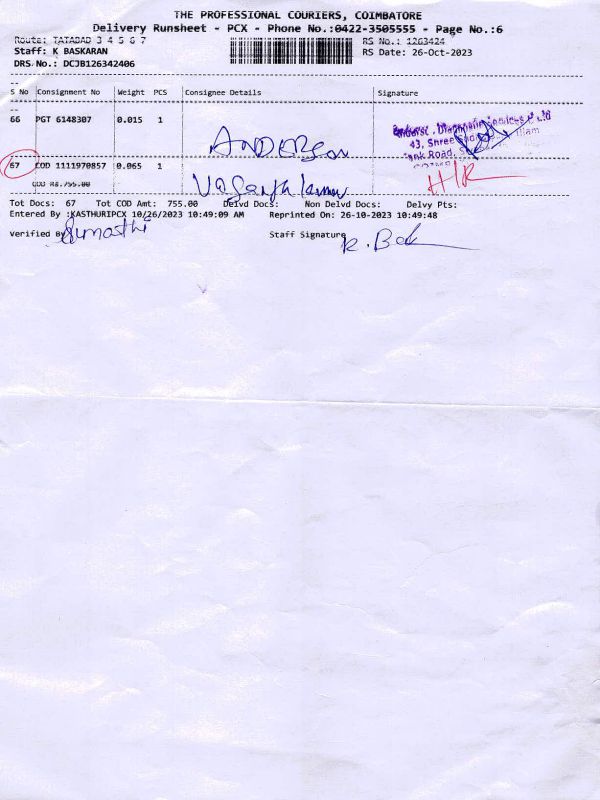 THE PROFESSIONAL COURIERS, COIMBATORE
Delivery Runsheet - PCX - Phone No.:0422-3505555 - Page No.:6
Route: TATABAD 3 4 5 6 7 RS No.: 1263424
Staff: K BASKARAN RS Date: 26-Oct-2023
DRS No.: DCJB126342406
S No Consignment No Weight PCS Consignee Details Signature
66 PGT 6148307 0.015 1 ANDERSON
Diagnostic Services
43, Shree
Tank Road,
67 COD 1111970857 0.065 1
COD Rs.755.00
Tot Docs: 67 Tot COD Amt: 755.00 Delvd Docs: Non Delvd Docs: Delvy Pts:
Entered By :KASTHURIPCX 10/26/2023 10:49:09 AM Reprinted On: 26-10-2023 10:49:48
Verified By Staff Signature